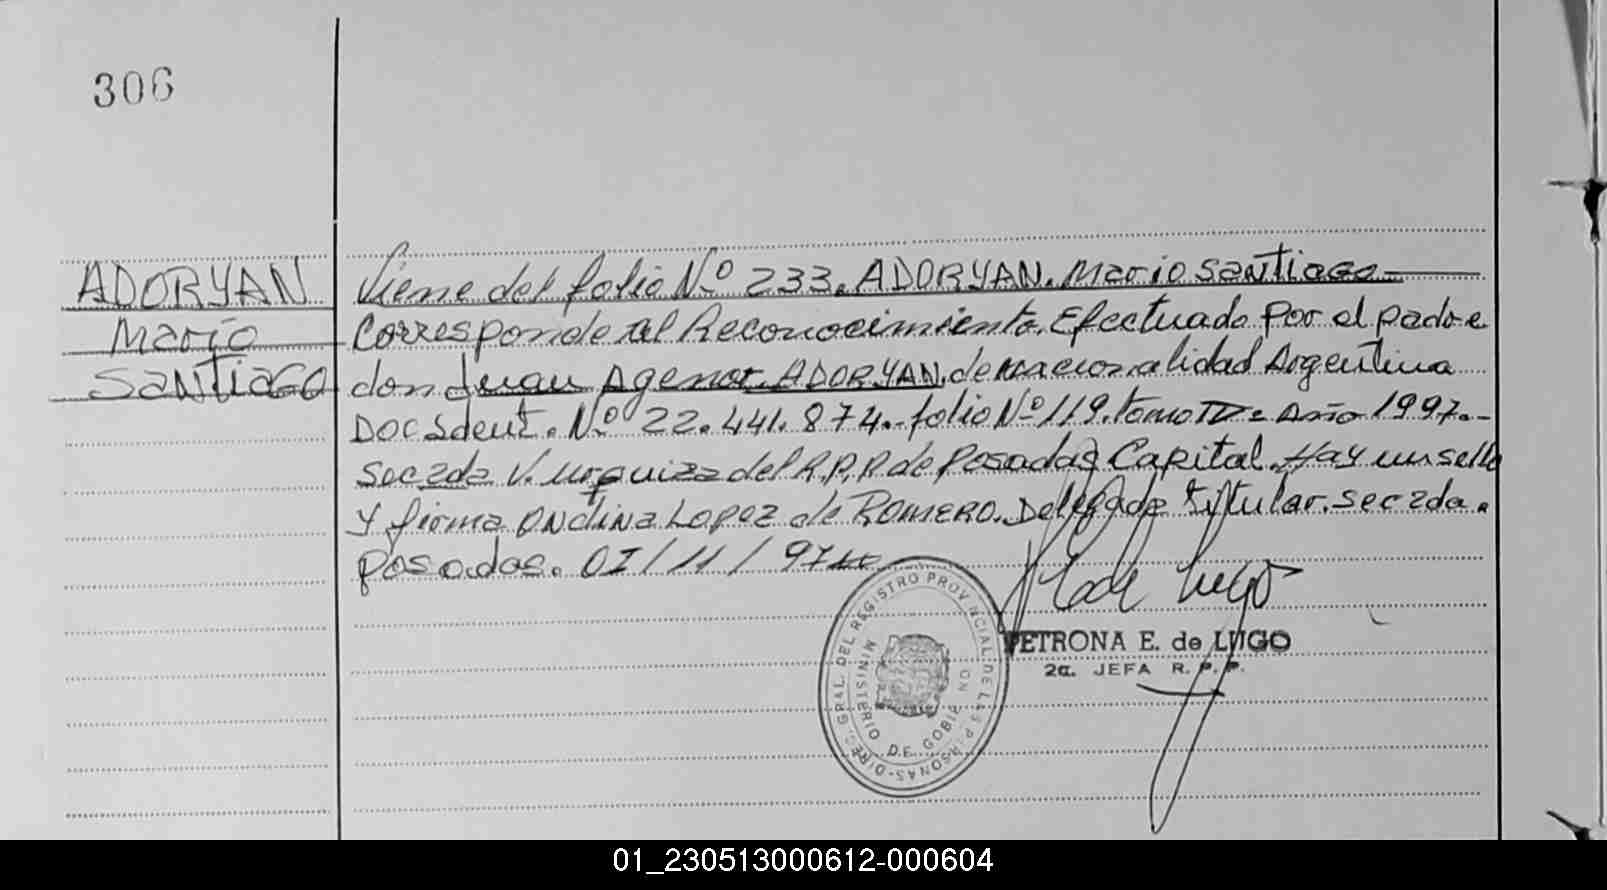 306
ADORYAN
Mario
Santiago
Viene del folio Nº 233. ADORYAN. Mario Santiago
Corresponde al Reconocimiento. Efectuado Por el padre
don Juan Agenor ADORYAN. de nacionalidad Argentina
Doc Ident. Nº 22.441.874. folio Nº 119. tomo IV - Año 1997.-
Sec 2da V. Urquiza del R.P.P. de Posadas Capital. Hay un sello
y firma Ondina Lopez de ROMERO. Delegada titular. sec 2da.
posadas. 07/11/97
PETRONA E. de LUGO
2a. JEFA R. P. P.
DIREC. GRAL. DEL REGISTRO PROVINCIAL DE LAS PERSONAS
MINISTERIO DE GOBIERNO
01_230513000612-000604